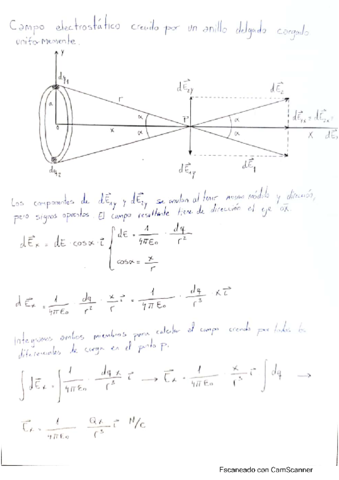 Campo electrostático creado por un anillo delgado cargado
uniformemente.
y
dq₁
dE₂y
dE₂
r
a
α
α
P
0
x
α
α
X
dq₂
dE₁y
dE₁
Las componentes de dE₁y y dE₂y se anulan al tener mismo módulo y dirección,
pero signos opuestos. El campo resultante tiene de dirección el eje OX.
dEx = dE cosα · i { dE = 1/4πε₀ · dq/r²
cosα = x/r
dEx = 1/4πε₀ · dq/r² · x/r i = 1/4πε₀ · dq/r³ · x i
Integramos ambos miembros para calcular el campo creado por todos los
diferenciales de carga en el punto P.
∫dEx = ∫ 1/4πε₀ · dq x/r³ i → Ex = 1/4πε₀ · x/r³ i ∫dq →
Ex = 1/4πε₀ · Qx/r³ i N/C
Escaneado con CamScanner